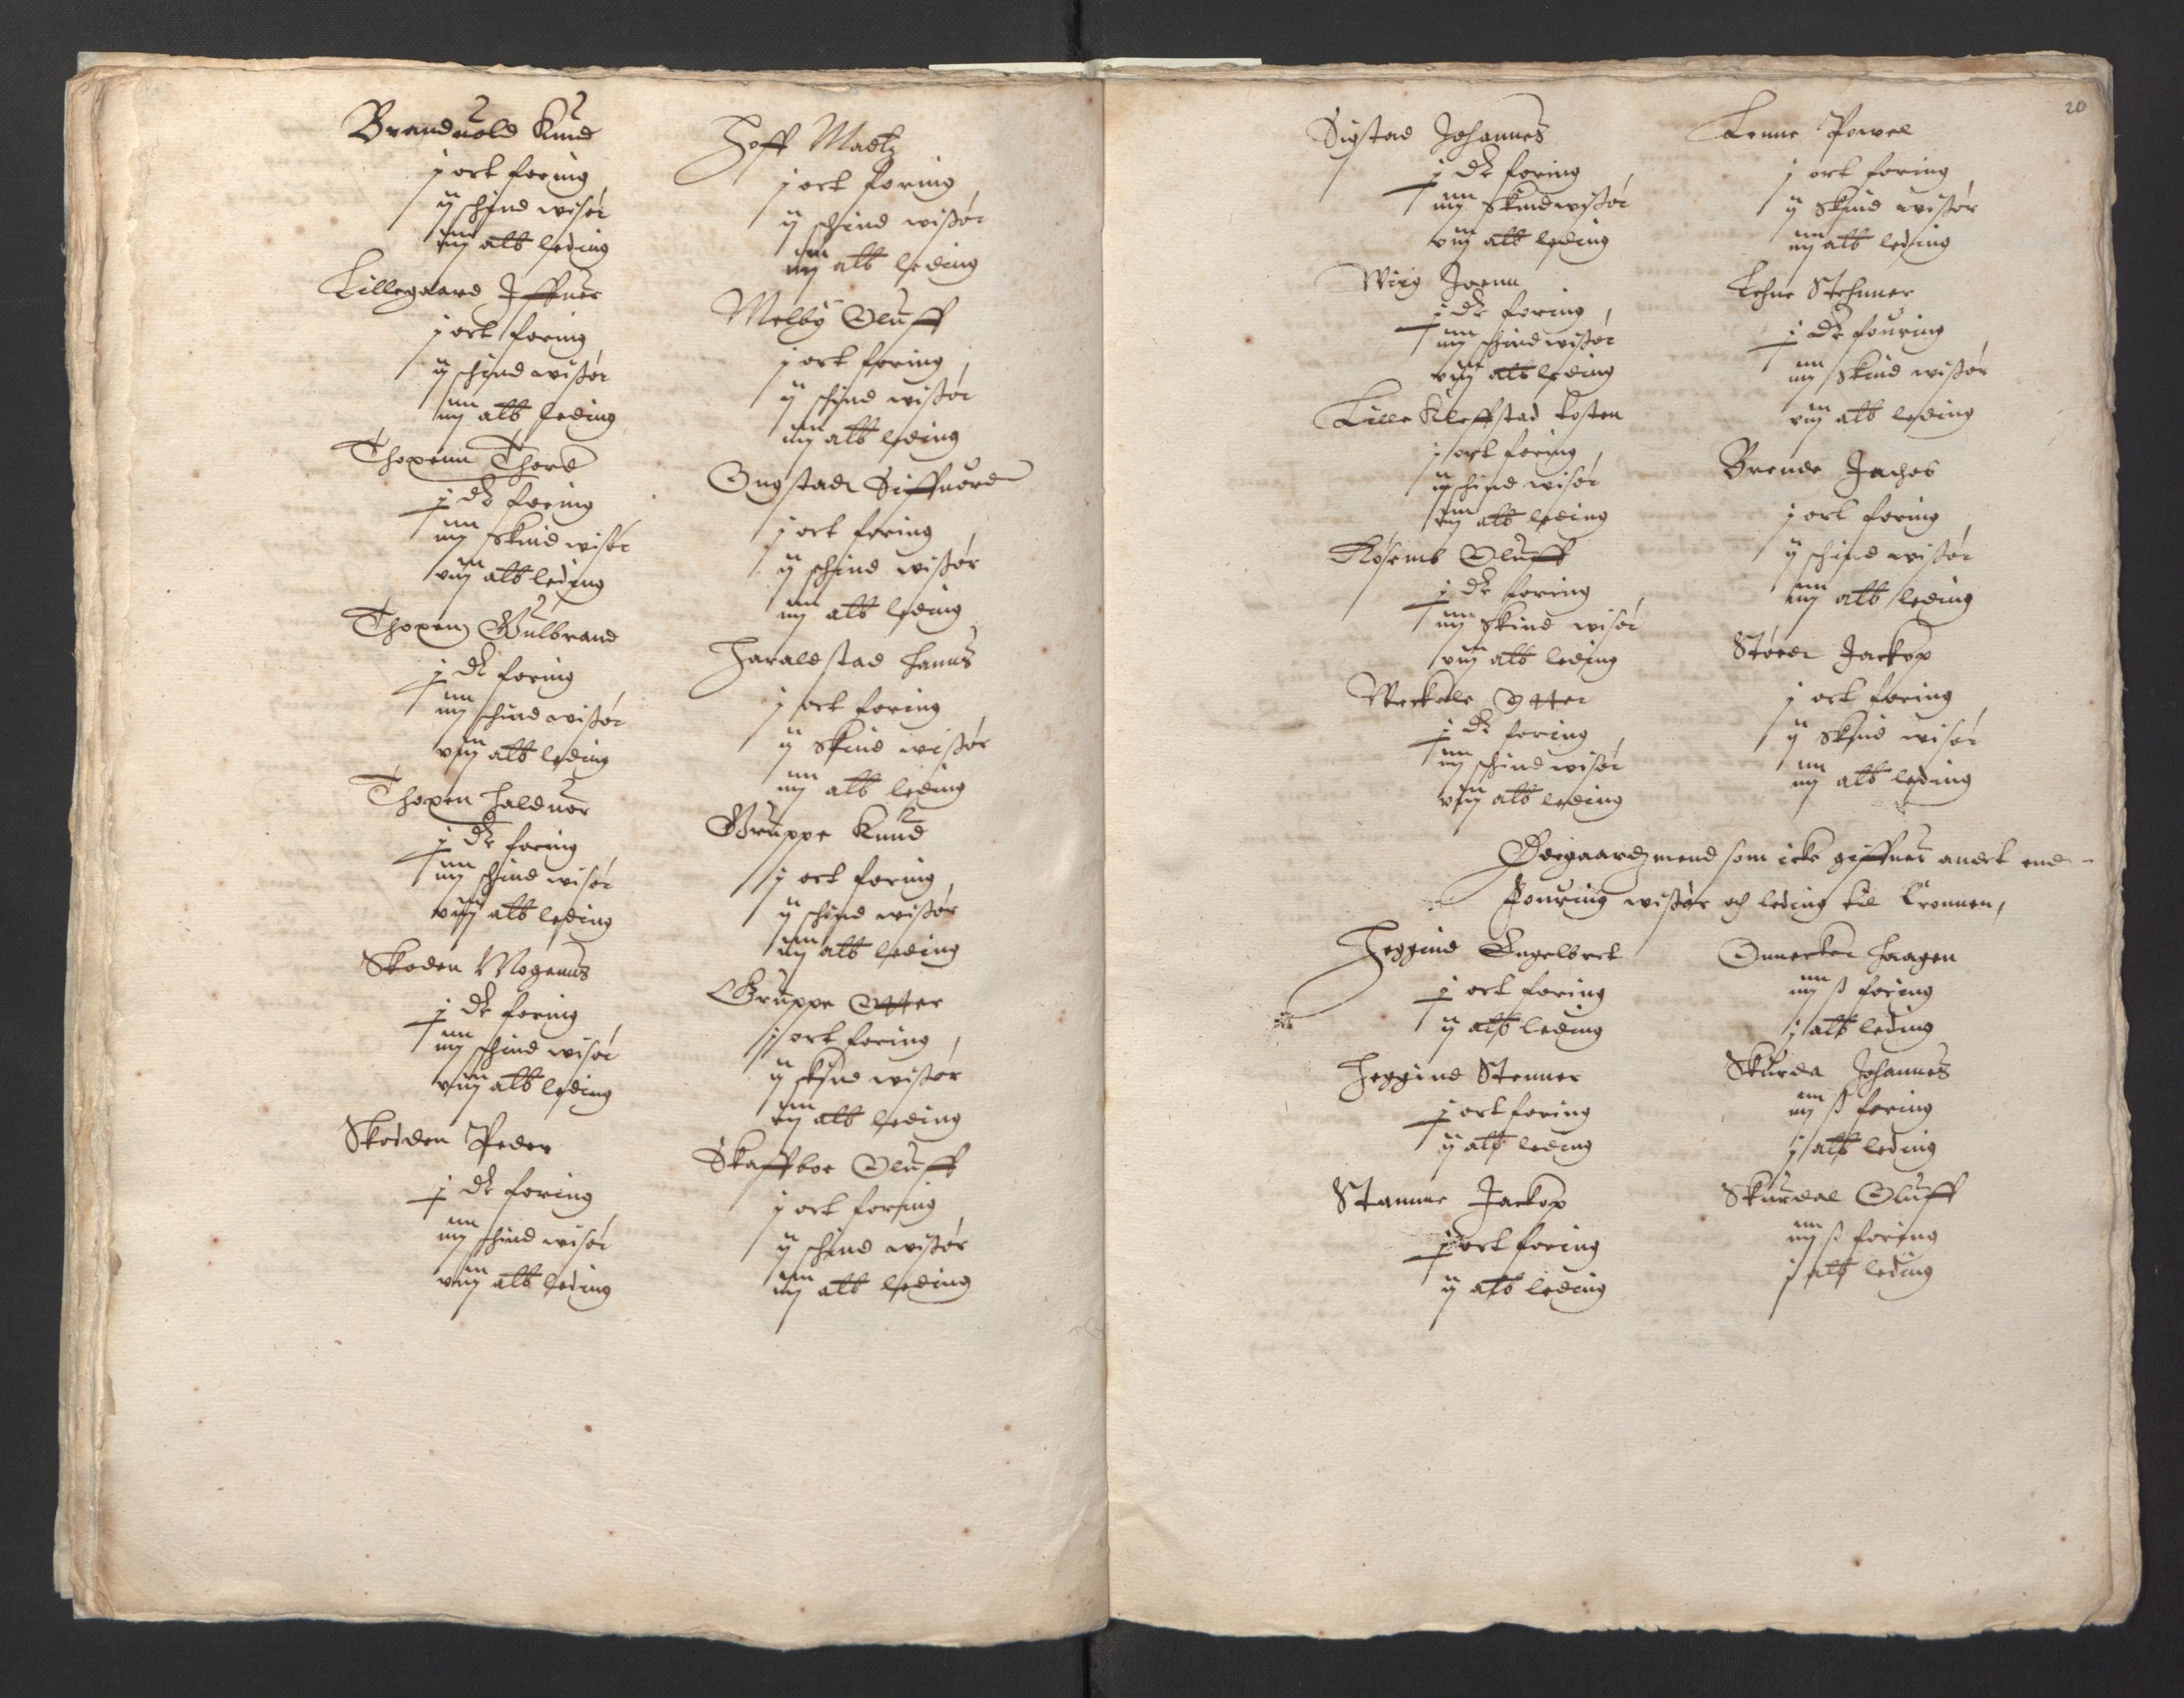 Branduold Knud
j ort foring
ij schind wisør
iiij alb leding
Lillegaard Iffuer
j ort foring
ij schind wissør
iiij alb leding
Thoxenn Thord
j dr foring
iiij skind wisør
viij alb leding
Thoxenn Gulbrand
j dr foring
iiij schind wissør
viij alb leding
Thoxen Halduor
j dr foring
iiij schind wisør
viij alb leding
Skoden Mogenns
j dr foring
iiij schind wisør
viij alb leding
Skodden Peder
j dr foring
iiij schind wisør
viij alb leding
Hoff Madtz
j ort foring
ij schind wissør
iiij alb leding
Melby Oluff
j ort foring
ij schind wissør
iiij alb leding
Ongstad Siffuord
j ort foring
ij schind wissør
iiij alb leding
Haraldstad Hanns
j ort foring
ij skind wissør
iiij alb leding
Gruppe Knud
j ort foring
ij schind wissør
iiij alb leding
Gruppe Otter
j ort foring
ij skind wissør
iiij alb leding
Skaffboe Oluff
j ort foring
ij schind wissør
iiij alb leding
20
Sigstad Johannes
j dr foring
iiij skind wissør
viij alb leding
Wiig Joenn
j dr foring
iiij schind wissør
viij alb leding
Lille Kleffstad Tosten
j ort foring
ij schind wisør
iiij alb leding
Røsemb Oluff
j dr foring
iiij skind wisør
viij alb leding
Weckle Otter
j dr foring
iiij schind wisør
viij alb leding
Lenne Powel
j ort foring
ij skind wissør
iiij alb leding
Lehne Stehnner
j dr fouring
iiij skind wissør
viij alb leding
Brende Jachob
j ort foring
ij schind wissør
iiij alb leding
Støer Jackop
j ort foring
ij skind wisør
iiij alb leding
Ødegaardzmend som icke giffuer andet end
fouring wissør och leding til Cronnen,
Heggind Engelbret
j ort foring
ij alb leding
Heggind Stenner
j ort foring
ij alb leding
Stamme Jackop
j ort foring
ij alb leding
Onnerker Haagen
iiij ß foring
j alb leding
Skurda Johannes
iiij ß foring
j alb leding
Skurdal Oluff
iiij ß foring
j alb leding